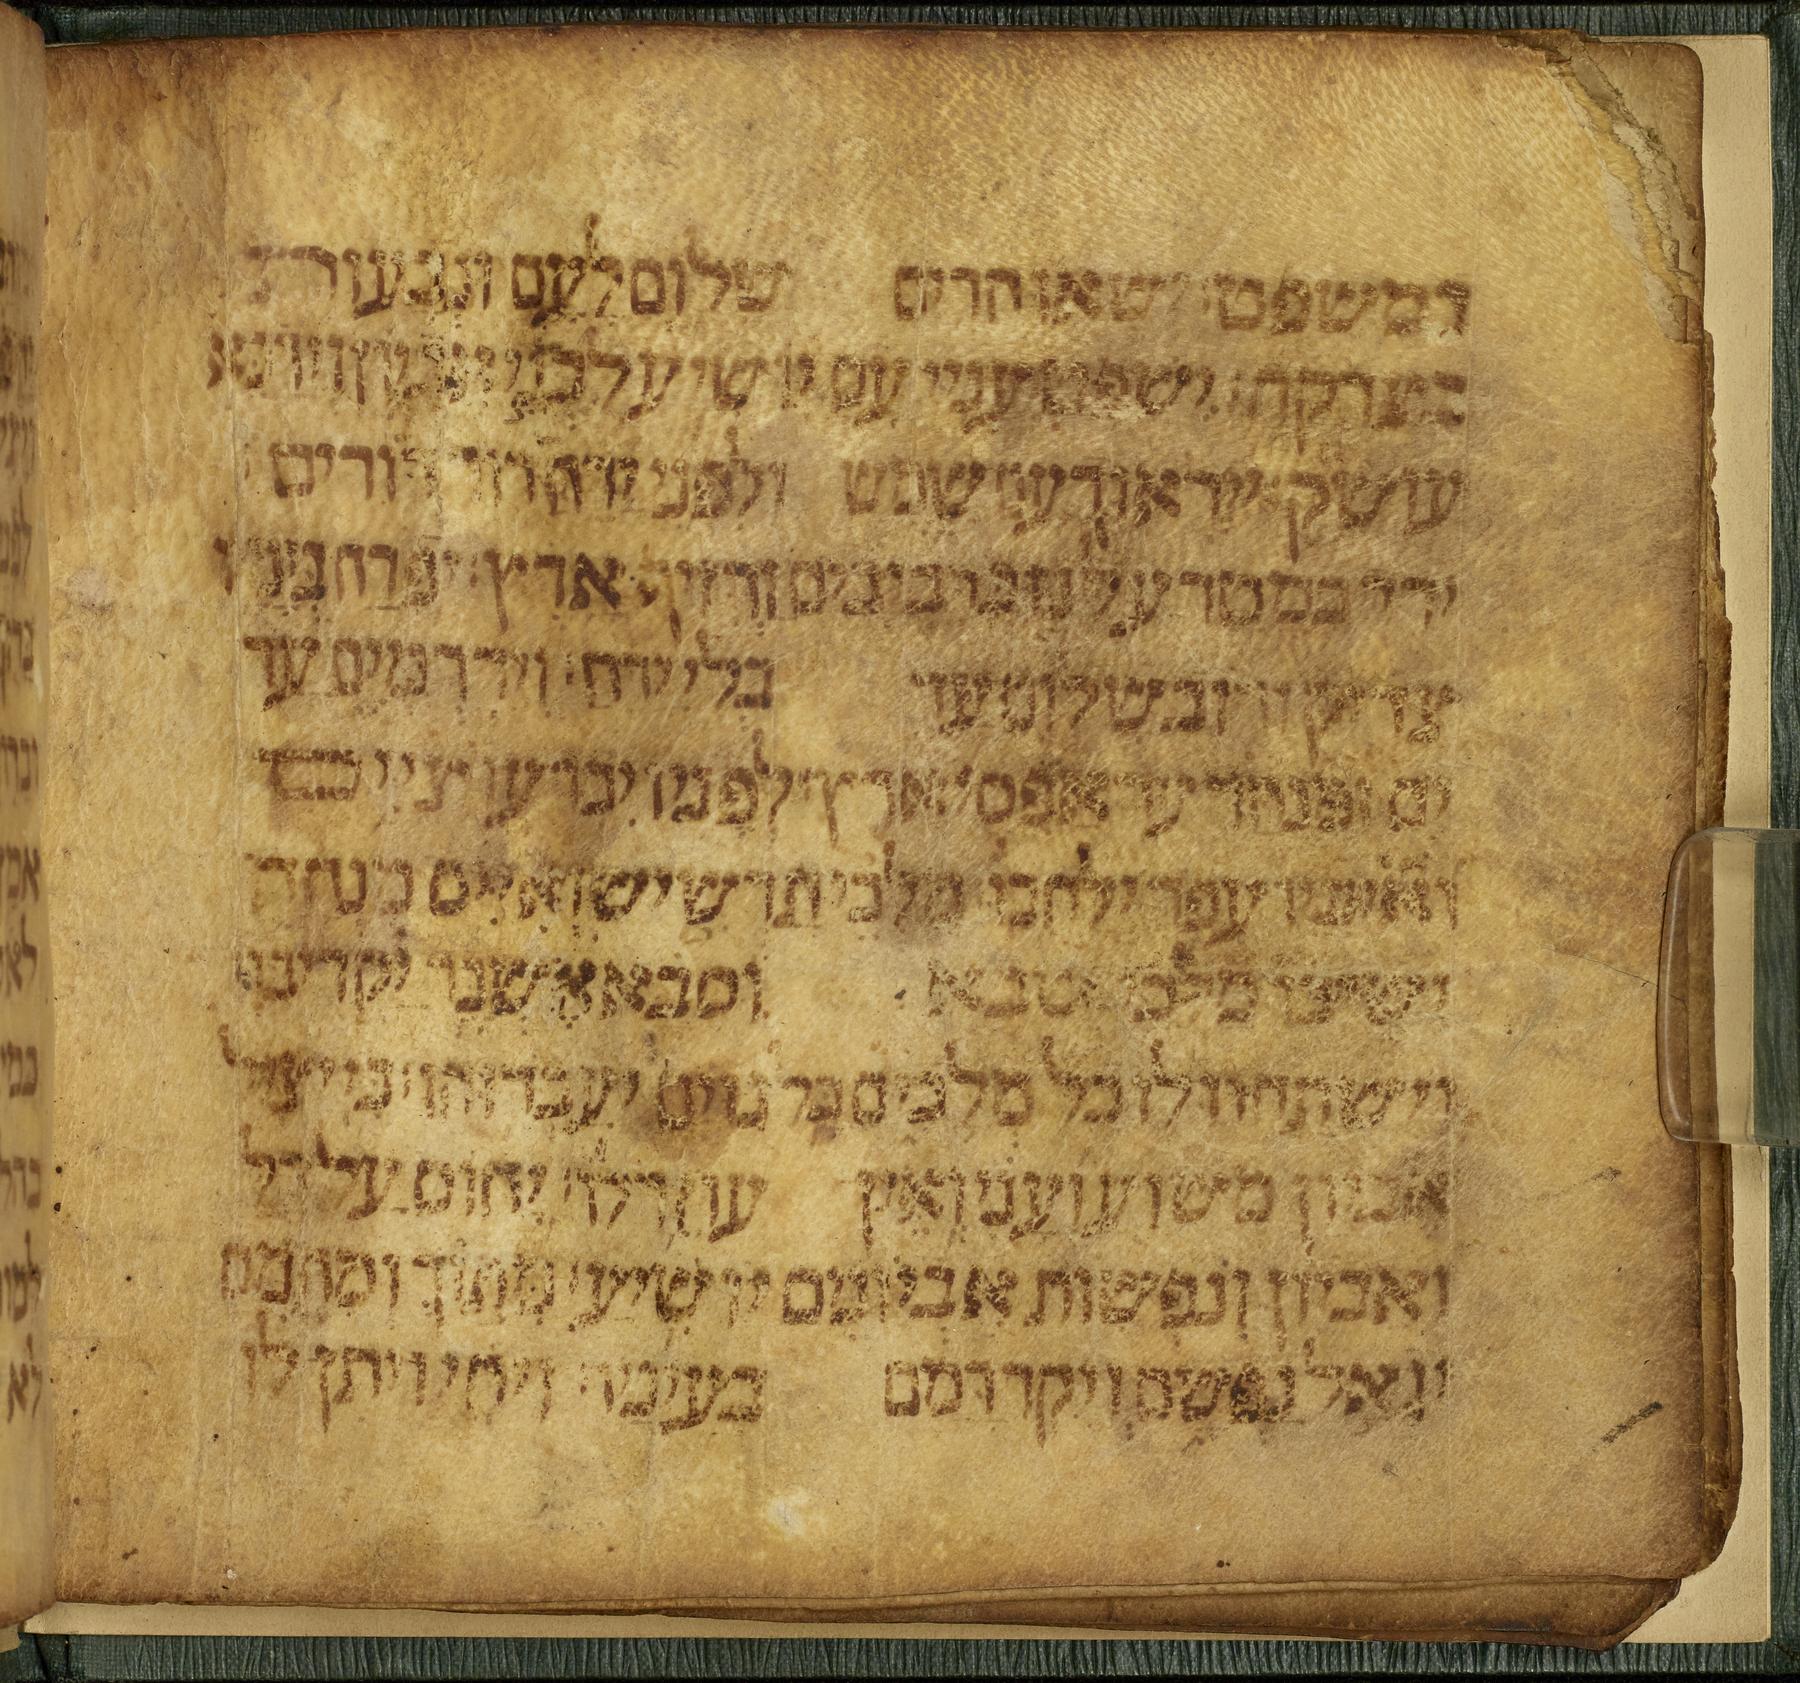 במשפט ישאו הרים שלום לעם וגבעות
בצדקה ישפט עניי עם יושיע לבני אביון וידכא
עושק ייראוך עם שמש ולפני ירח דור דורים
ירד כמטר על גז כרביבים זרזיף ארץ יפרח בימיו
צדיק ורב שלום עד בלי ירח וירד מים עד
ים ומנהר עד אפסי ארץ לפניו יכרעו ציים
ואיביו עפר ילחכו מלכי תרשיש ואיים מנחה
ישיבו מלכי שבא וסבא אשכר יקריבו
וישתחוו לו כל מלכים כל גוים יעבדוהו כי יציל
אביון משוע ועני ואין עוזר לו יחוס על דל
ואביון ונפשות אביונים יושיע מתוך ומחמס
יגאל נפשם ויקר דמם בעיניו ויחי ויתן לו